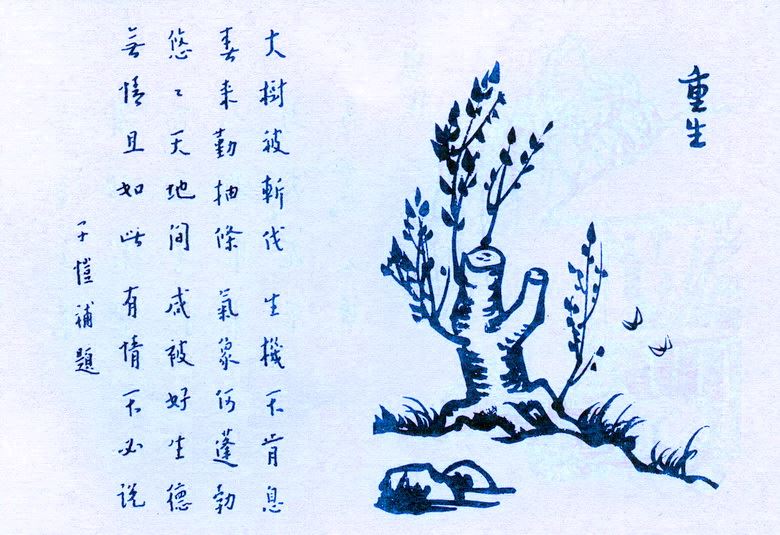 重生
大樹被斬伐 生機不肯息
春来勤抽條 氣象何蓬勃
悠〻天地间 咸被好生德
無情且如此 有情不必説
子愷補題